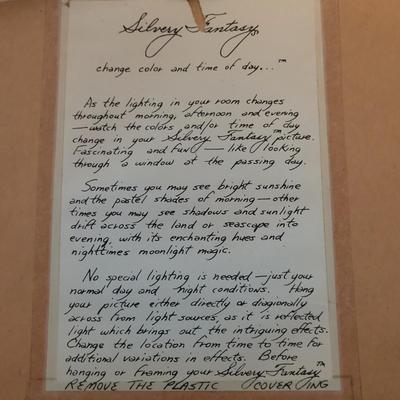 Silvery Fantasy
change color and time of day...™
As the lighting in your room changes
throughout morning, afternoon and evening
— watch the colors and/or time of day
change in your Silvery Fantasy™ picture.
Fascinating and fun — like looking
through a window at the passing day.
Sometimes you may see bright sunshine
and the pastel shades of morning — other
times you may see shadows and sunlight
drift across the land or seascape into
evening, with its enchanting hues and
nighttimes moonlight magic.
No special lighting is needed — just your
normal day and night conditions. Hang
your picture either directly or diagionally
across from light sources, as it is reflected
light which brings out the intriguing effects.
Change the location from time to time for
additional variations in effects. Before
hanging or framing your Silvery Fantasy™
REMOVE THE PLASTIC COVERING